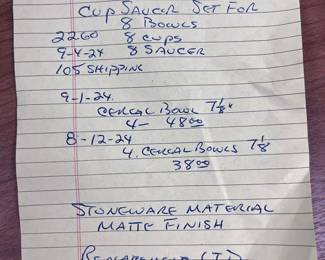 CUP SAUCER SET FOR
8 BOWLS
2260 8 CUPS
9-4-24 8 SAUCER
105 SHIPPING
9-1-24.
CEREAL BOWL 7 1/8"
4- 48.00
8-12-24
4. CEREAL BOWLS 7 1/8
38.00
STONEWARE MATERIAL
MATTE FINISH